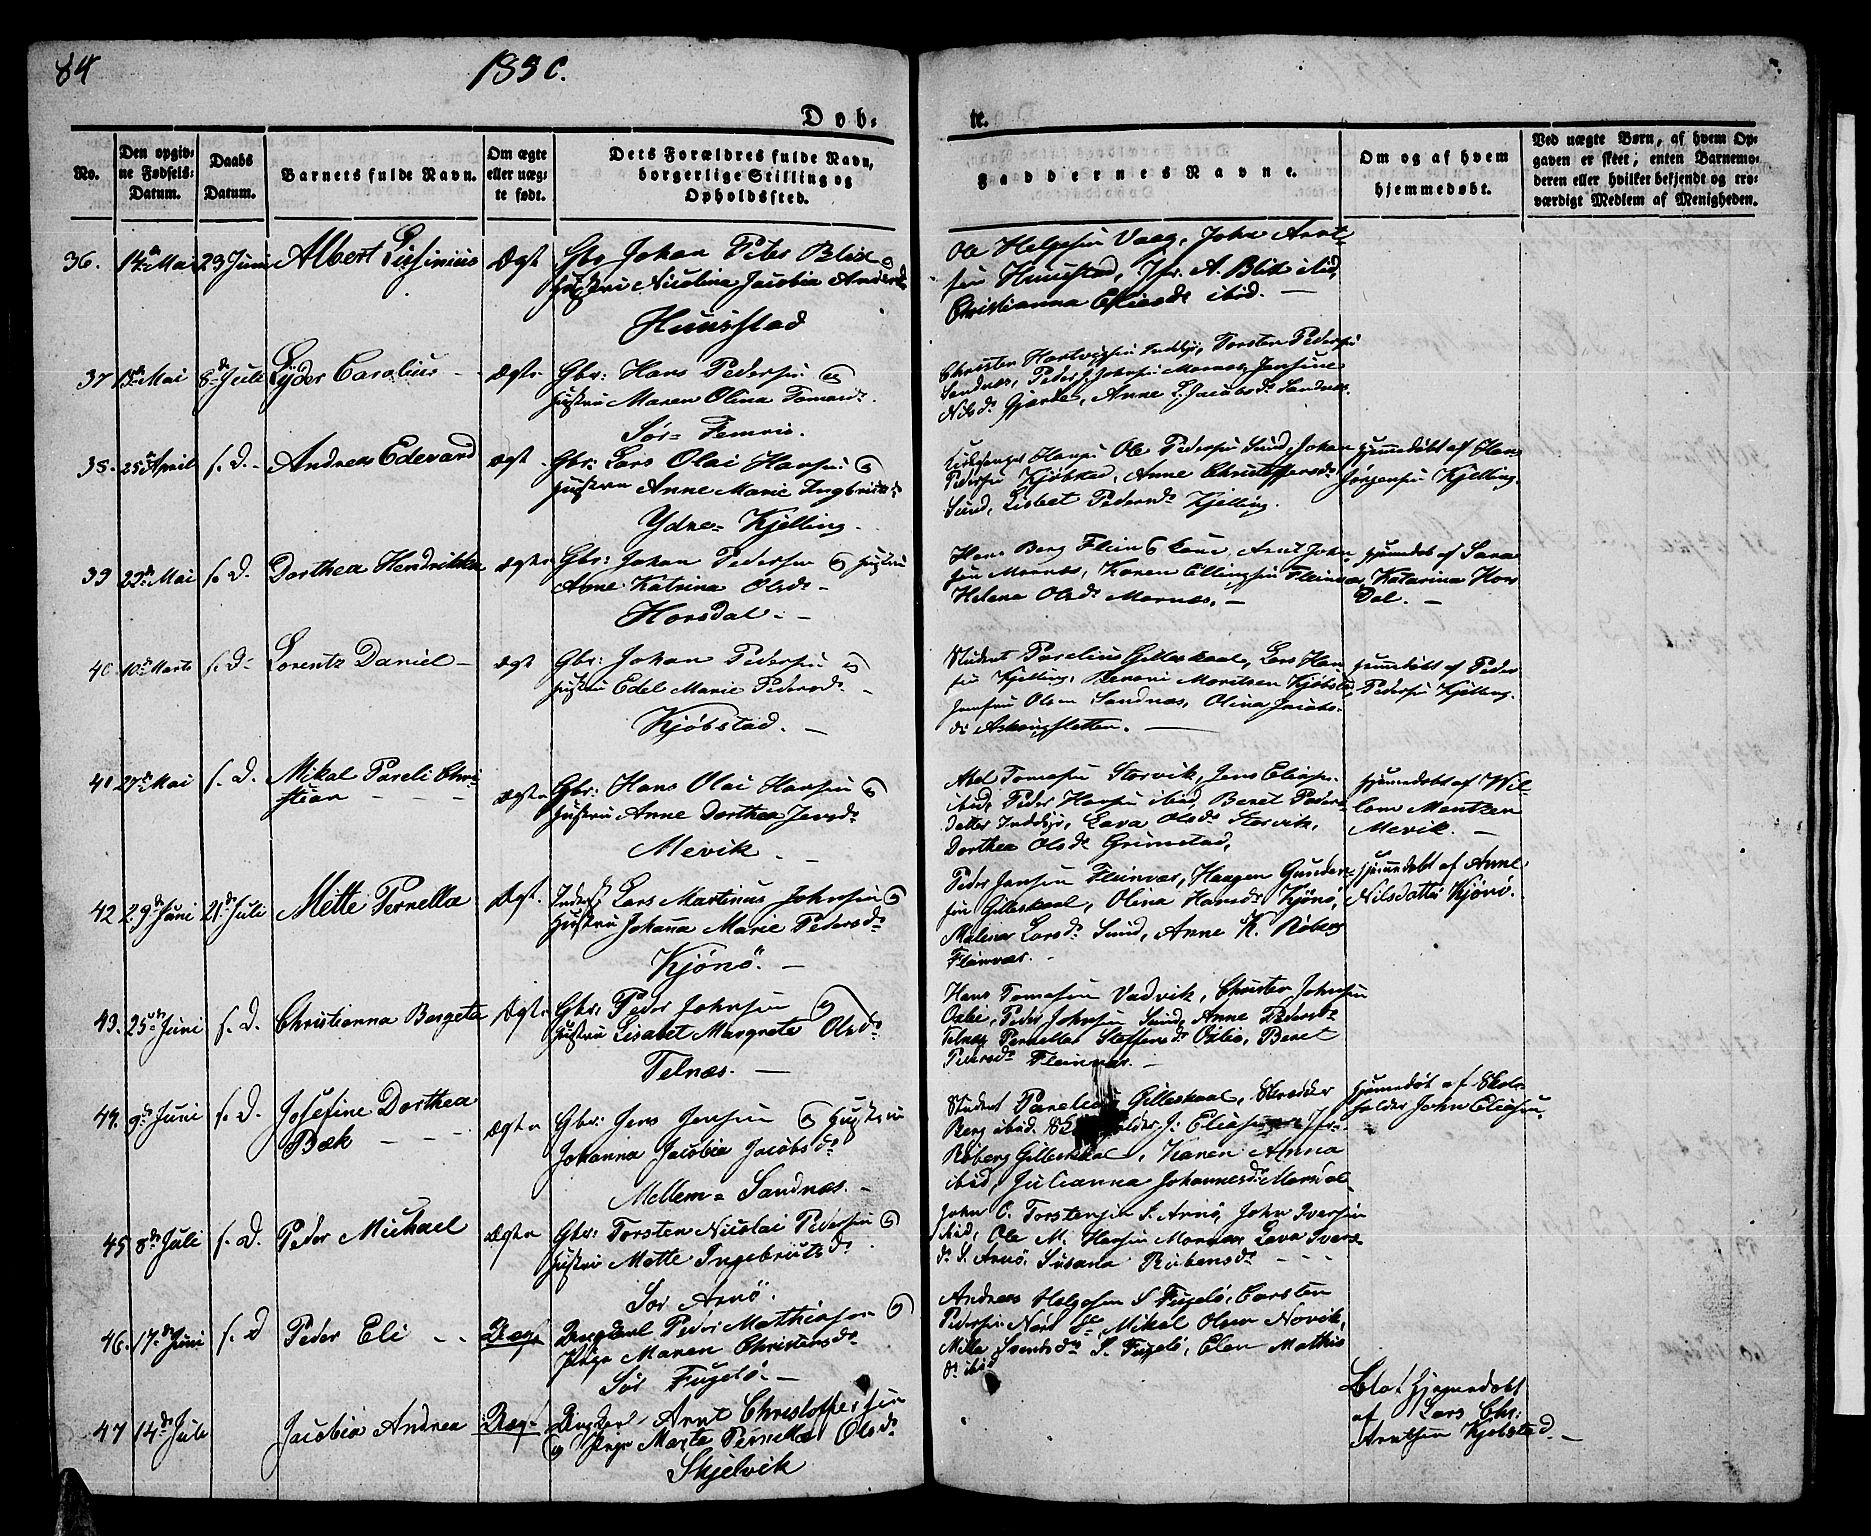 84
1830.
Døb-
te.
No.
Den opgiv-
ne Fødsels-
Datum.
Daabs
Datum.
Barnets fulde Navn.
Om ægte
eller uæg-
te født.
Dets Forældres fulde Navn,
borgerlige Stilling og
Opholdssted.
Faddernes Navne.
Om og af hvem
hjemmedøbt.
Ved uægte Børn, af hvem Op-
gaven er skeet; enten Barnemo-
deren eller hvilket bekjendt og tro-
værdigt Medlem af Menigheden.
36. 14de Mai 29 Juni Albert Ægte Gbr Johan Peter Blix og
Hustru Nicolina Jacobia
Huusstad
Ole Helgesen Vaag, John Arnt-
sen Huusstad, Jfr. A. Blix ibid,
Christianna ibid.
37 Mai 8de Juli Lyder Carolius Ægte Gbr: Hans Pedersen og
Hustru Maren Olina
Sør-Femris.
Christen Hartvigsen Inddyr, Torsten Pedersen
Sandnæs, Peder Johnsen Mornæs, Jensine
Nilsdr Gjærde, Anne L. Jacobsdr Sandnæs.
38. 25de April s. D. Andreas Edevard Ægte Gbr: Lars Olai Hansen og
Hustru Anne Marie
Ydre-Kjelling.
Hansen Ole Pedersen Sund, Johan
Pedersen Kjøbstad, Anne Christophersdr
Sund, Lisbet Pedersdr Kjelling.
hjemmedøbt af Hans
Jørgensen Kjelling.
39 23de Mai s. D. Dorthea Hendrikka Ægte Gbr: Johan Pedersen og Hustru
Anne Katrina Olsdr
Horsdal.
Hans Berg Flein og Kone, Arnt John-
sen Mornæs, Karen Ellingsen Fleinvær,
Helena Olsdr Mornæs.
hjemmedøbt af Sara
Katarina Hors
Dal.
40 10de Marts s. D. Lorentz Daniel Ægte Gbr: Johan Pedersen og
Hustru Edel Marie Pedersdr
Kjøbstad.
Student Parelius Gilleskaal, Lars Han-
sen Kjelling, Moritsen Kjøbstad,
Olsen Sandnæs, Olina Jacobs-
dr
hjemmedøbt af Peder
Pedersen Kjelling.
41 27de Mai s. D. Mikal Pareli Chri-
stian Ægte Gbr: Hans Olai Hansen og
Hustru Anne Dorthea Jensdr
Mevik.
Abel Tomasen Storvik, Jens Elias-
ibid, Peder Hansen ibid, Beret Peders-
datter Inddyr, Lava Olsdr Storvik,
Dorthea Olsdr Grimstad,
hjemmedøbt af Wil-
lom Mentzen
Mevik.
42 29de Juni 21de Juli Mette Pernella Ægte Lars Martinus Johnsen og
Hustru Johanna Marie Pedersdr
Kjønø.
Peder Jensen Fleinvær, Haagen Gunder-
sen Gilleskaal, Olina Hansdr Kjønø,
Malena Larsdr Sund, Anne K. Røberg
Fleinvær.
hjemmedøbt af Anne
Nilsdatter Kjønø.
43. 25de Juni s. D. Christianna Bergeta Ægte Gbr: Peder Johnsen og
Hustru Lisabet Margrete Olsdr
Telnæs.
Hans Tomasen Vadvik, Christen Johnsen
Peder Johnsen Sund, Anne Pedersdr
Telnæs, Pernella Steffensdr Beret
Pedersdr Fleinvær.
44. 9de Juni s. D. Josefine Dorthea
Bæk Ægte Gbr: Jens Jensen og Hustru
Johanna Jacobia Jacobsdr
Mellem-Sandnæs.
Student Parelius Gilleskaal,
Berg ibid. J: Eliasen Jfr:
Røberg Gilleskaal, Karen Anna
ibid, Julianna Johannesdr
hjemmedøbt af Skole-
holder John Eliasen
45 8de Juli s. D. Peder Michael Ægte Gbr: Torsten Nicolai Pedersen og
Hustru Mette Ingebritsdr
Sør Arnø.
John C. Torstensen S. Arnø, John Iversen
ibid, Ole M. Hansen Mornæs, Lava Ivers-
dr S. Arnø, Susana Rubensdr
46. 17de Juni s. D Peder Eli Uægte Ungkarl Peder Mathiasen og
Pige Maren Christensdr
Sør Fugelø.
Andreas Helgesen S. Fugelø, Carsten
Pedersen Mikal Olsen Novik,
Mille S. Fugelø, Elen Mathis
dr ibid
47 14de Juli Jacobia Andrea Uægte Ungkarl Arnt Christophersen
og Pige Marta Pernella Olsdr
Skjelvik
Blot hjemmedøbt
af Lars Chr:
Arntsen Kjøbstad.